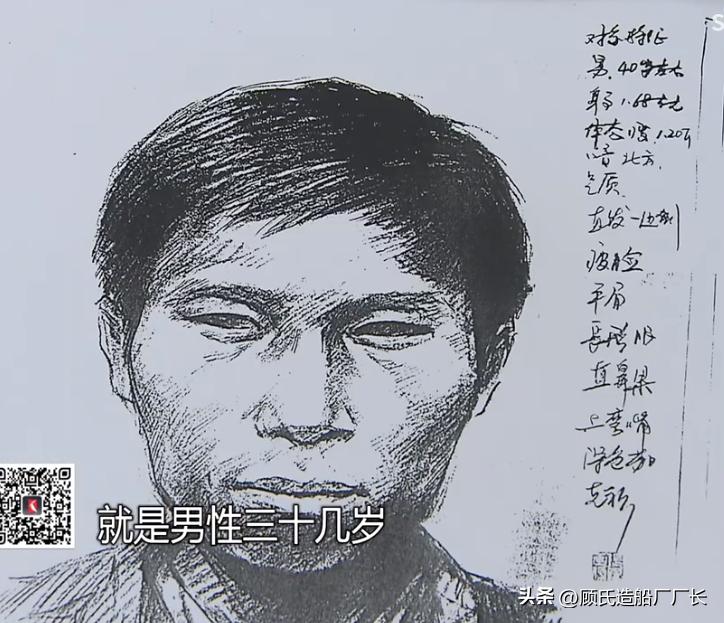 男，40岁左右
身高1.68左右
体态瘦，120斤
口音北方，
气质，
直发一边倒
瘦脸
平眉
长型眼
直鼻梁
上弯嘴
深色加
克衫
就是男性三十几岁
头条 @顾氏造船厂厂长